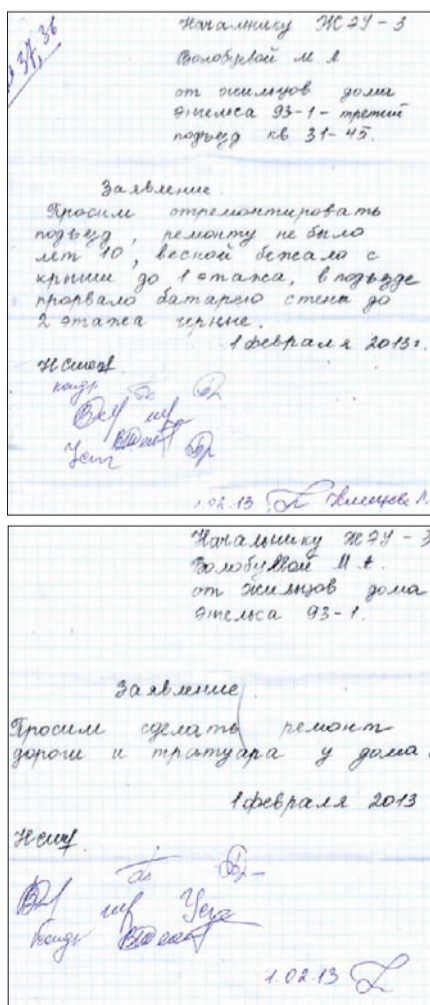 37,36
Начальнику ЖЭУ-3
Волобуевой М.А
от жильцов дома
Энгельса 93-1- третий
подъезд кв 31-45.
Заявление.
Просим отремонтировать
подъезд, ремонту не было
лет 10, весной бежало с
крыши до 1 этажа, в подъезде
прорвало батарею стены до
2 этажа черные.
1 февраля 2013г.
1.02.13
Начальнику ЖЭУ-3
М.А.
от жильцов дома
Энгельса 93-1.
Заявление
Просим сделать ремонт
дороги и тратуара у дома.
1 февраля 2013
1.02.13